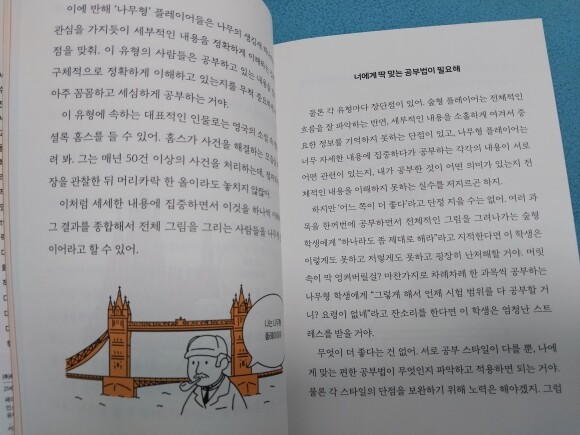 이에 반해 '나무형' 플레이어들은 나무의 생김새
관심을 가지듯이 세부적인 내용을 정확하게 이해하는
점을 맞춰. 이 유형의 사람들은 공부하고 있는 내용을
구체적으로 정확하게 이해하고 있는지를 무척
아주 꼼꼼하고 세심하게 공부하는 거야.
이 유형에 속하는 대표적인 인물로는 영국의 소설 속
셜록 홈스를 들 수 있어. 홈스가 사건을 해결하는
려 봐. 그는 매년 50건 이상의 사건을 처리하는데,
장을 관찰한 뒤 머리카락 한 올이라도 놓치지 않잖아.
이처럼 세세한 내용에 집중하면서 이것을 하나씩
그 결과를 종합해서 전체 그림을 그리는 사람들을 나무
이어라고 할 수 있어.
나는 나무형
플레이어
너에게 딱 맞는 공부법이 필요해
물론 각 유형마다 장단점이 있어. 숲형 플레이어는 전체적인
흐름을 잘 파악하는 반면, 세부적인 내용을 소홀하게 여겨서 중
요한 정보를 기억하지 못하는 단점이 있고, 나무형 플레이어는
너무 자세한 내용에 집중하다가 공부하는 각각의 내용이 서로
어떤 관련이 있는지, 내가 공부한 것이 어떤 의미가 있는지 전
체적인 내용을 이해하지 못하는 실수를 저지르곤 하지.
하지만 '어느 쪽이 더 좋다'라고 단정 지을 수는 없어. 여러 과
목을 한꺼번에 공부하면서 전체적인 그림을 그려나가는 숲형
학생에게 "하나라도 좀 제대로 해라"라고 지적한다면 이 학생은
이렇게도 못하고 저렇게도 못하고 굉장히 난처해할 거야. 머릿
속이 막 엉켜버릴걸? 마찬가지로 차례차례 한 과목씩 공부하는
나무형 학생에게 "그렇게 해서 언제 시험 범위를 다 공부할 거
니? 요령이 없네"라고 잔소리를 한다면 이 학생은 엄청난 스트
레스를 받을 거야.
무엇이 더 좋다는 건 없어. 서로 공부 스타일이 다를 뿐, 나에
게 맞는 편한 공부법이 무엇인지 파악하고 적용하면 되는 거야.
물론 각 스타일의 단점을 보완하기 위해 노력은 해야겠지. 그럼